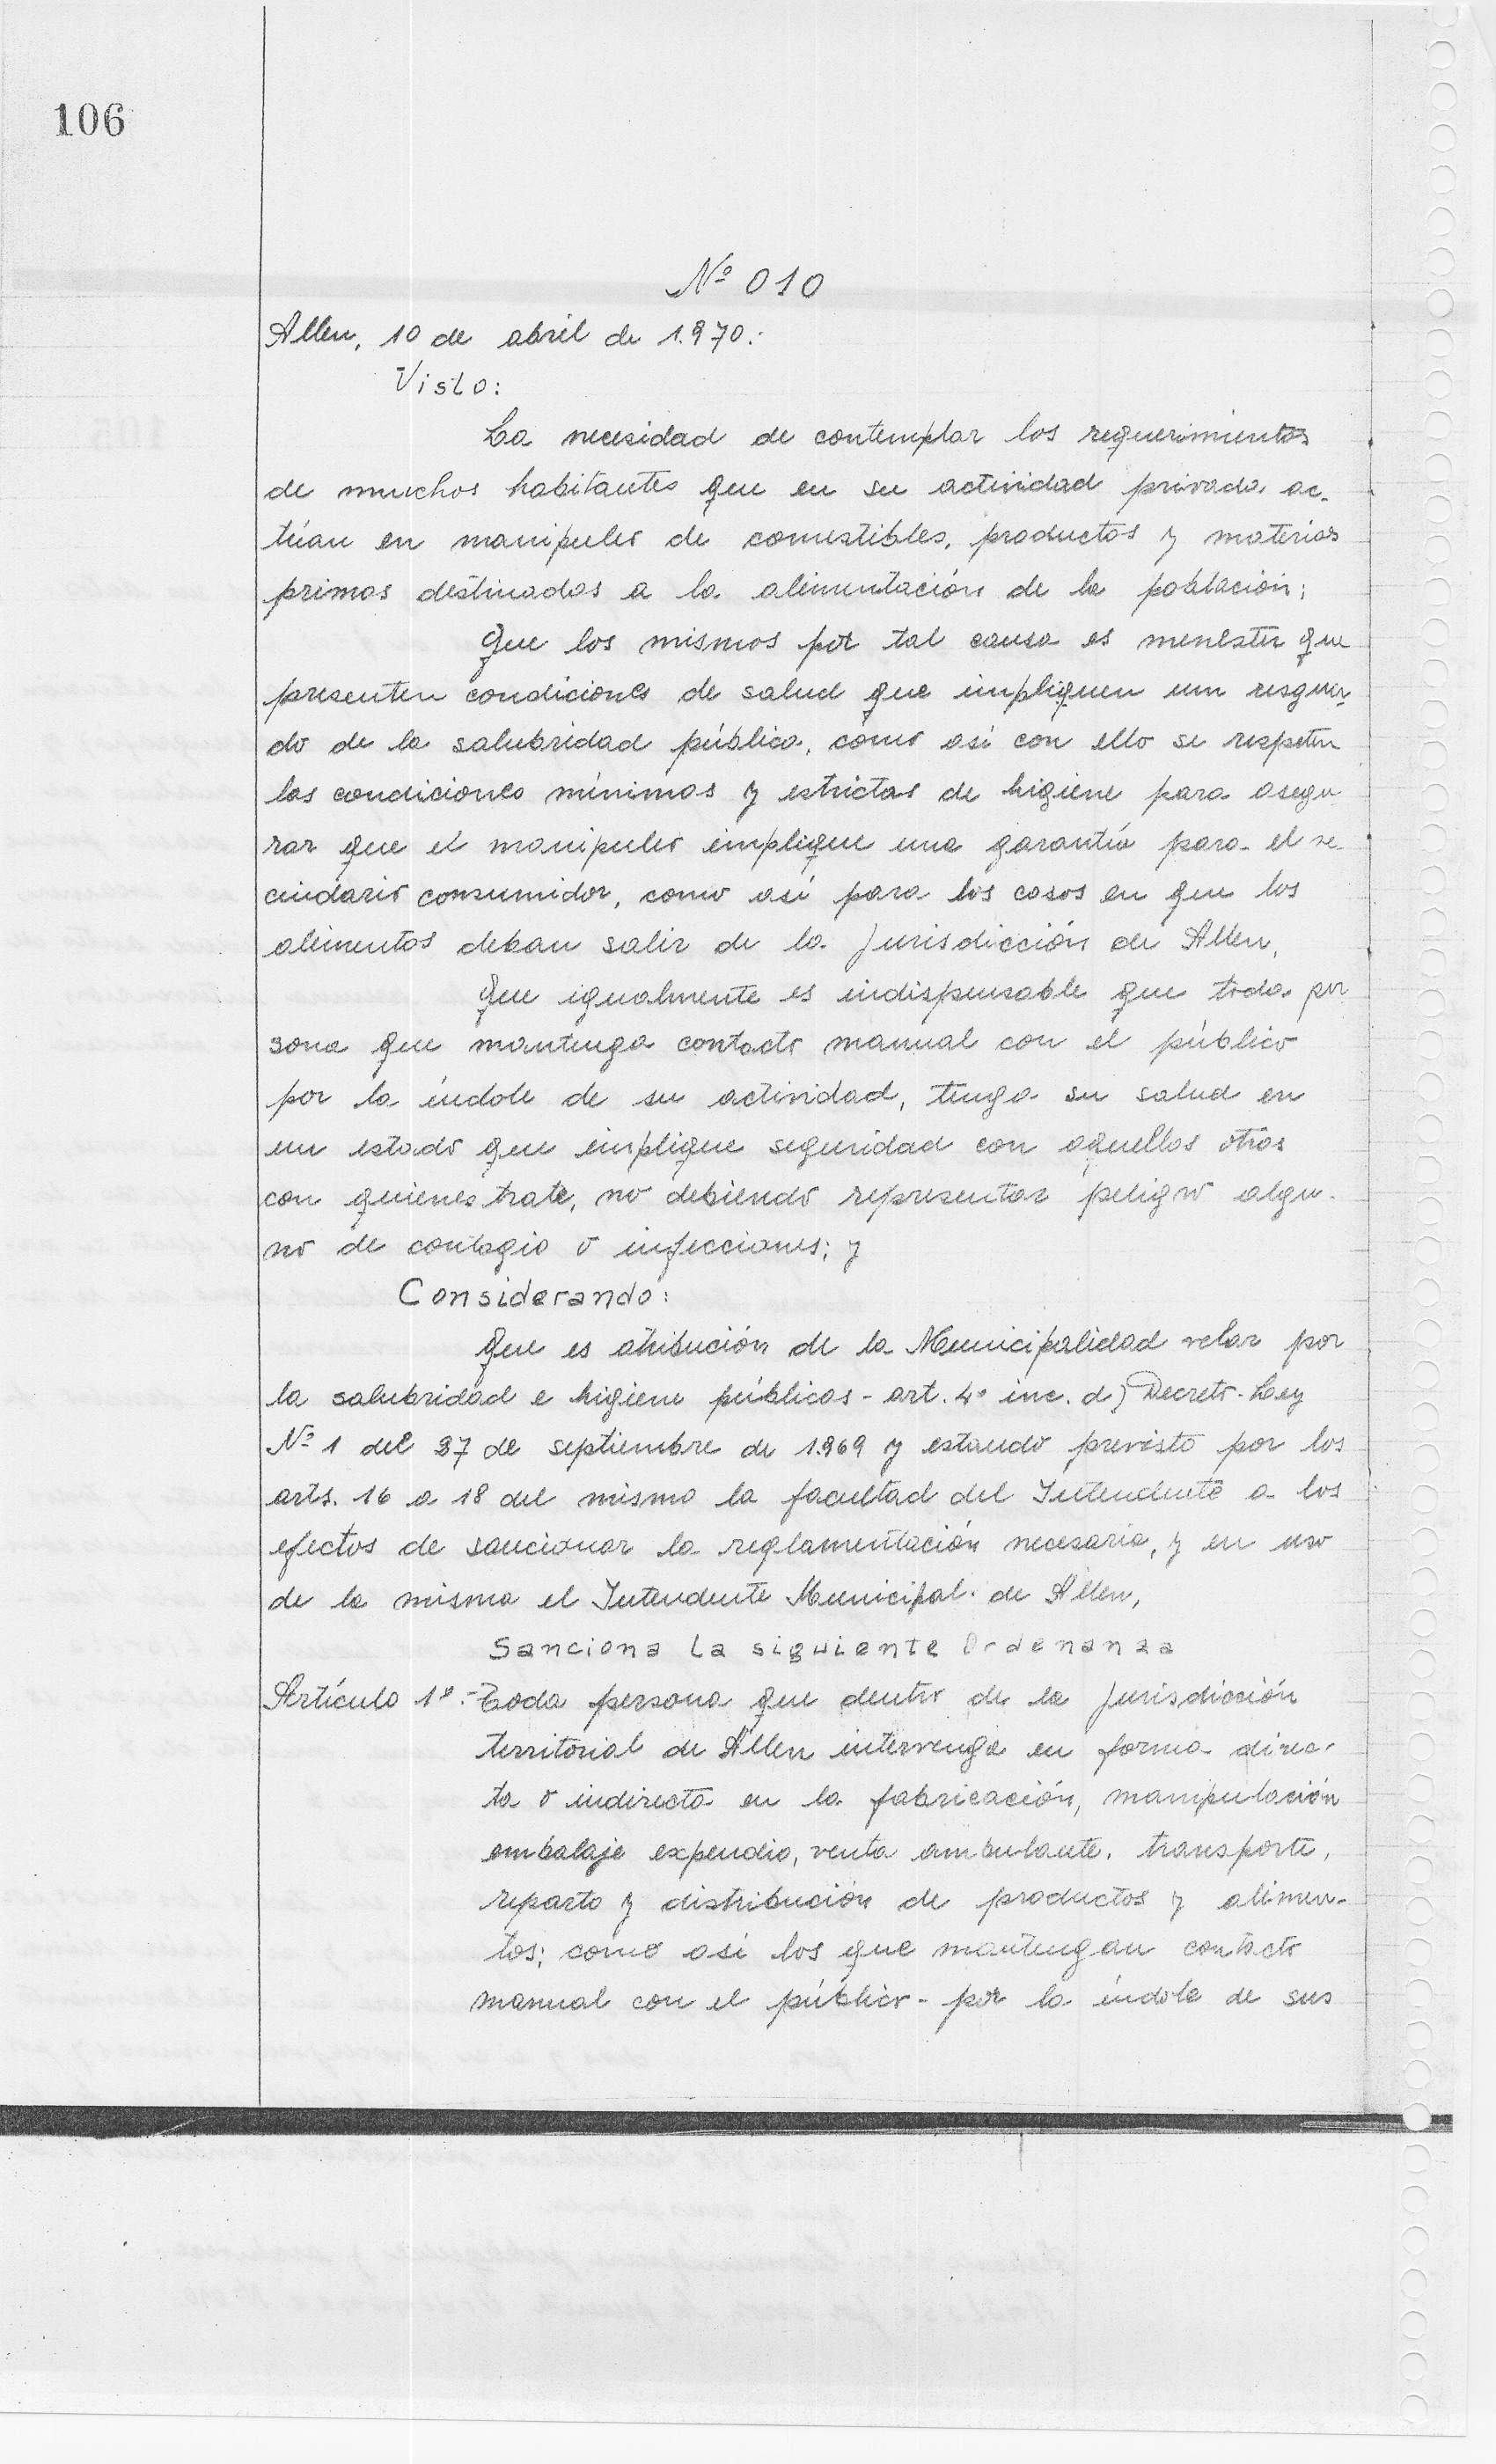 106
Nº 010
Allen, 10 de abril de 1.970:
Visto:
La necesidad de contemplar los requerimientos
de muchos habitantes que en su actividad privada ac-
túan en manipuleo de comestibles, productos y materias
primas destinadas a la alimentación de la población;
Que los mismos por tal causa es menester que
presenten condiciones de salud que impliquen un resguar-
do de la salubridad pública, como así con ello se respeten
las condiciones mínimas y estrictas de higiene para asegu
rar que el manipuleo implique una garantía para el ve-
cindario consumidor, como así para los casos en que los
alimentos deban salir de la jurisdicción de Allen,
Que igualmente es indispensable que toda per
sona que mantenga contacto manual con el público
por la índole de su actividad, tenga su salud en
un estado que implique seguridad con aquellos otros
con quienes trate, no debiendo representar peligro algu-
no de contagio o infecciones; y
Considerando:
Que es atribución de la Municipalidad velar por
la salubridad e higiene públicas - art. 4º inc. d) Decreto-Ley
Nº 1 del 27 de septiembre de 1.969 y estando previsto por los
arts. 16 a 18 del mismo la facultad del Intendente a los
efectos de sancionar la reglamentación necesaria, y en uso
de la misma el Intendente Municipal de Allen,
Sanciona la siguiente Ordenanza
Artículo 1º.- Toda persona que dentro de la jurisdicción
territorial de Allen intervenga en forma direc-
ta o indirecta en la fabricación, manipulación
embalaje expendio, venta ambulante, transporte,
reparto y distribución de productos y alimen-
tos; como así los que mantengan contacto
manual con el público - por la índole de sus